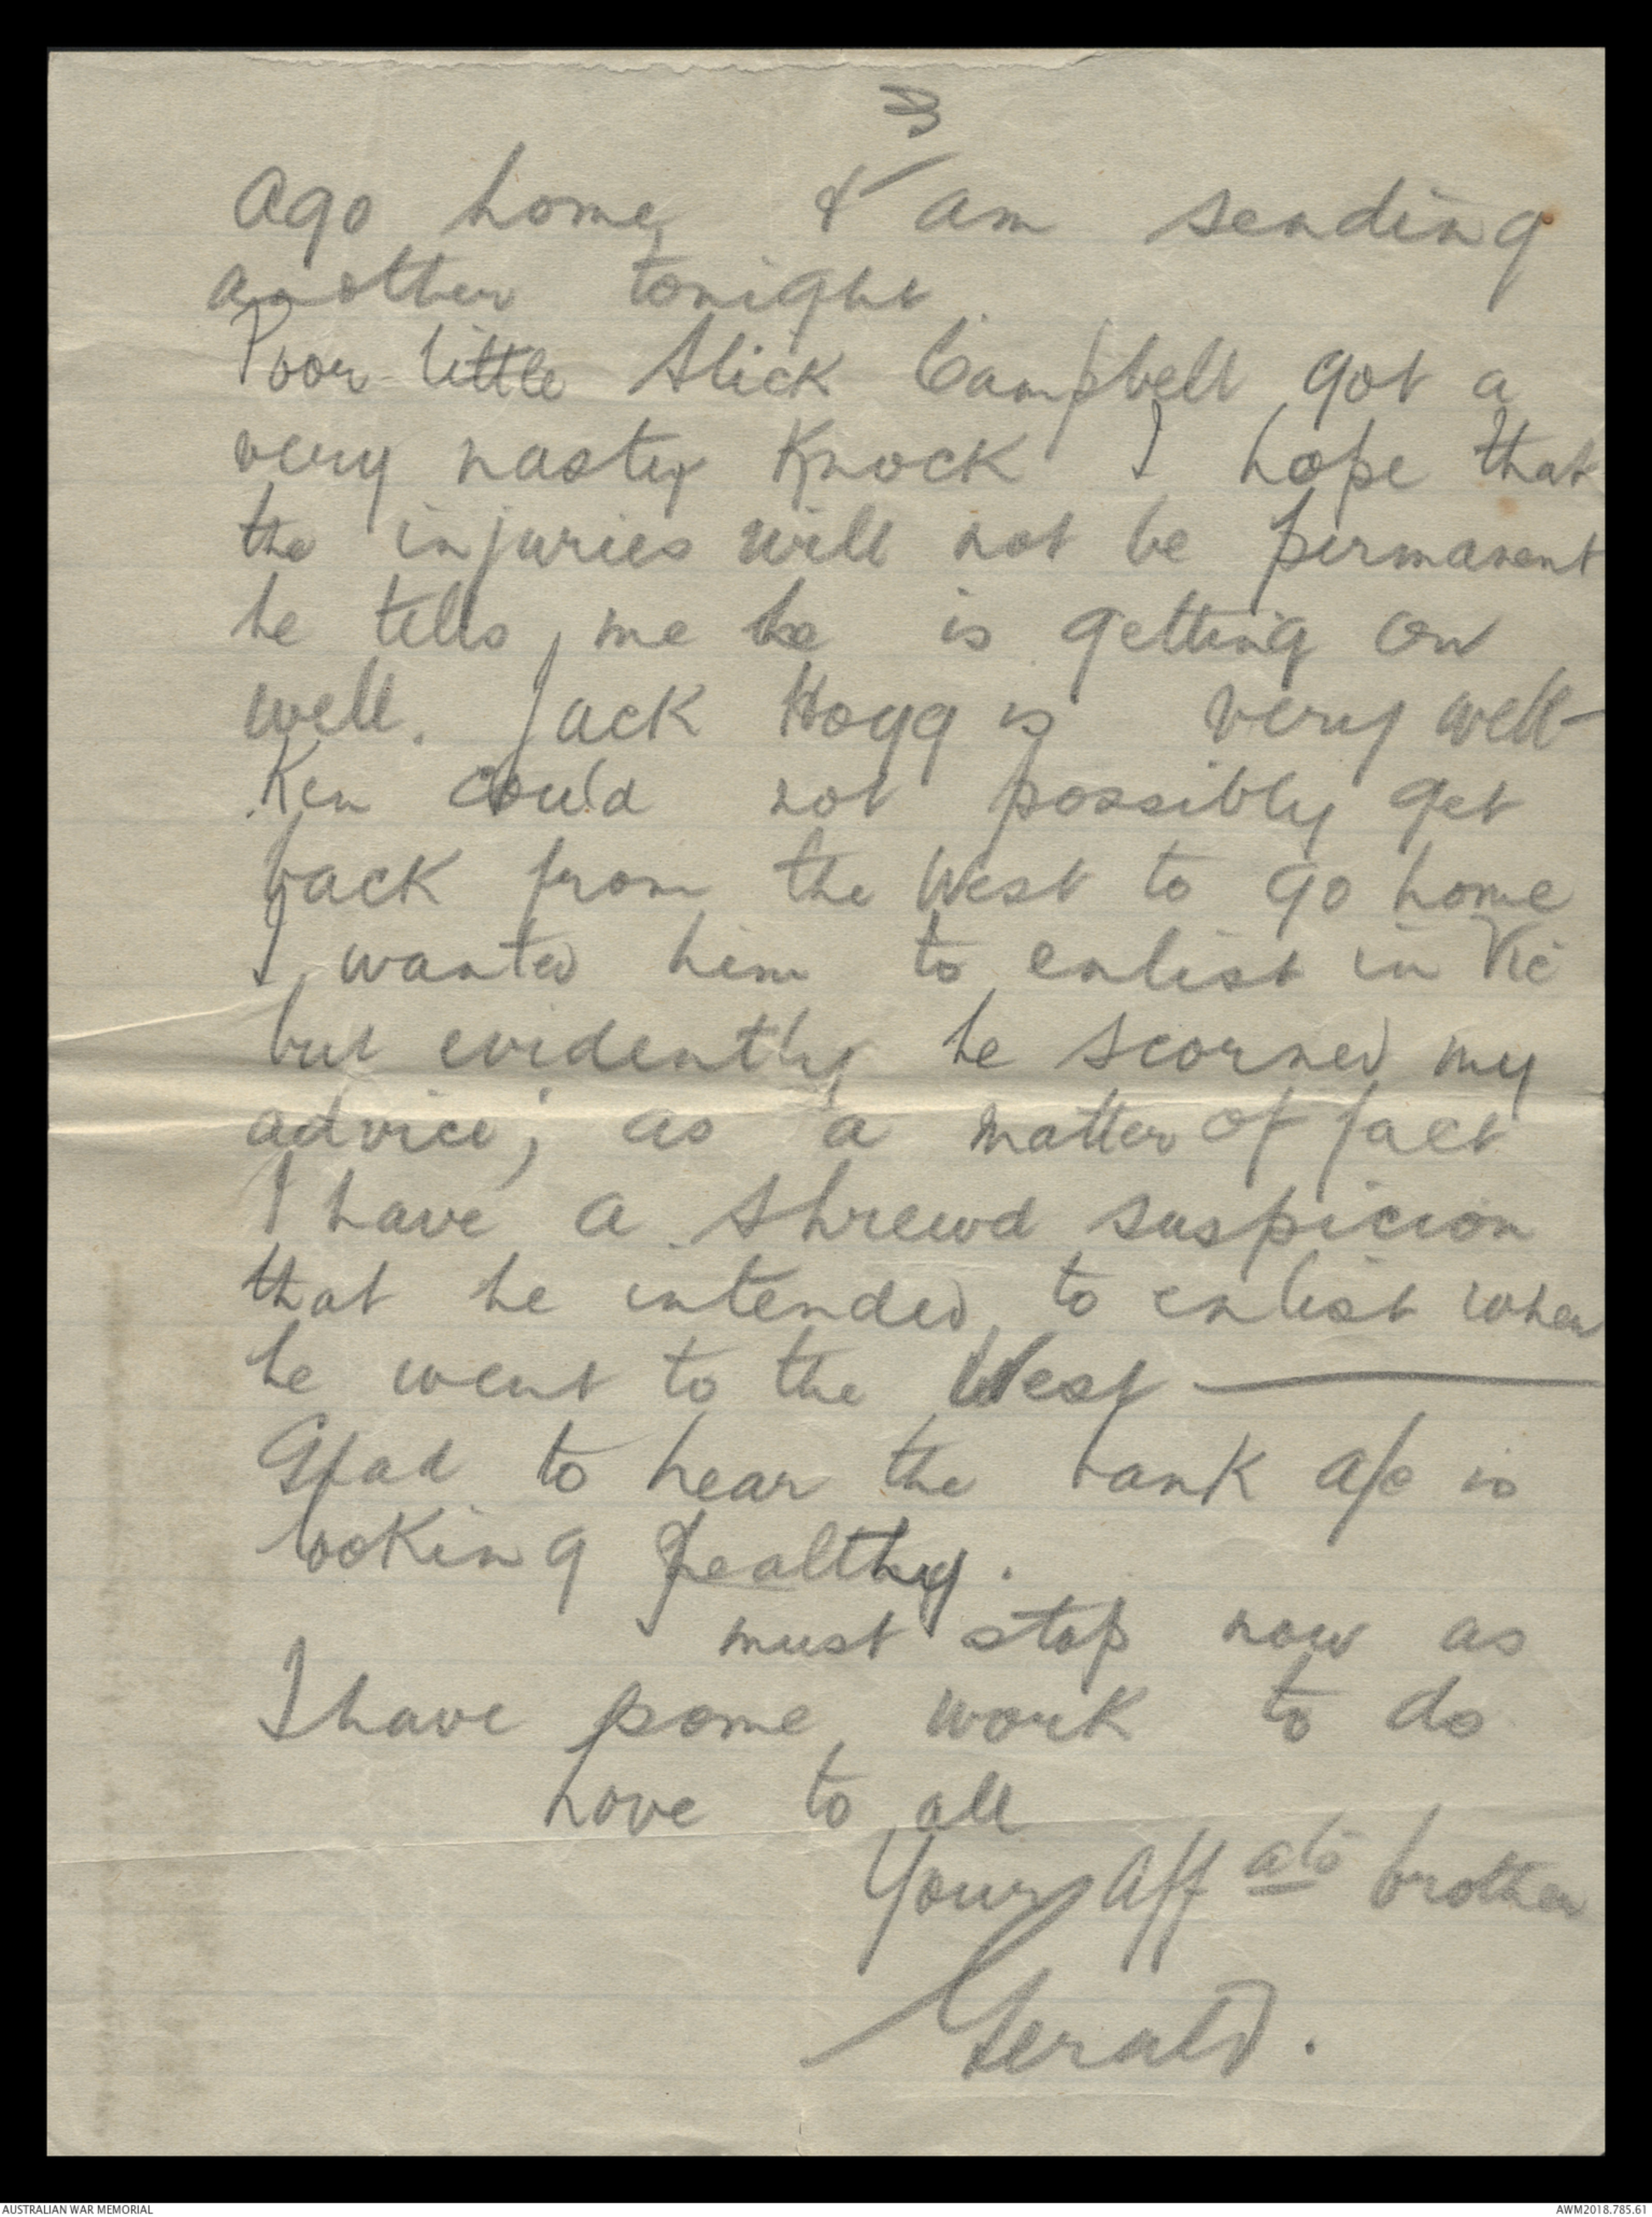 3
ago home, & am sending
another tonight.
Poor little Alick Campbell got a
very nasty knock I hope that
the injuries will not be permanent
he tells me he is getting on
well. Jack Hogg is very well –
Ken could not possibly get
back from the West to go home
I wanted him to enlist in Vic
but evidently he scorned my
advice; as a matter of fact
I have a shrewd suspicion
that he intended to enlist when
he went to the West —
Glad to hear the bank a/c is
looking healthy.
must stop now as
I have some work to do
Love to all
Your aff ate brother
Gerald.
AUSTRALIAN WAR MEMORIAL
AWM2018.785.61